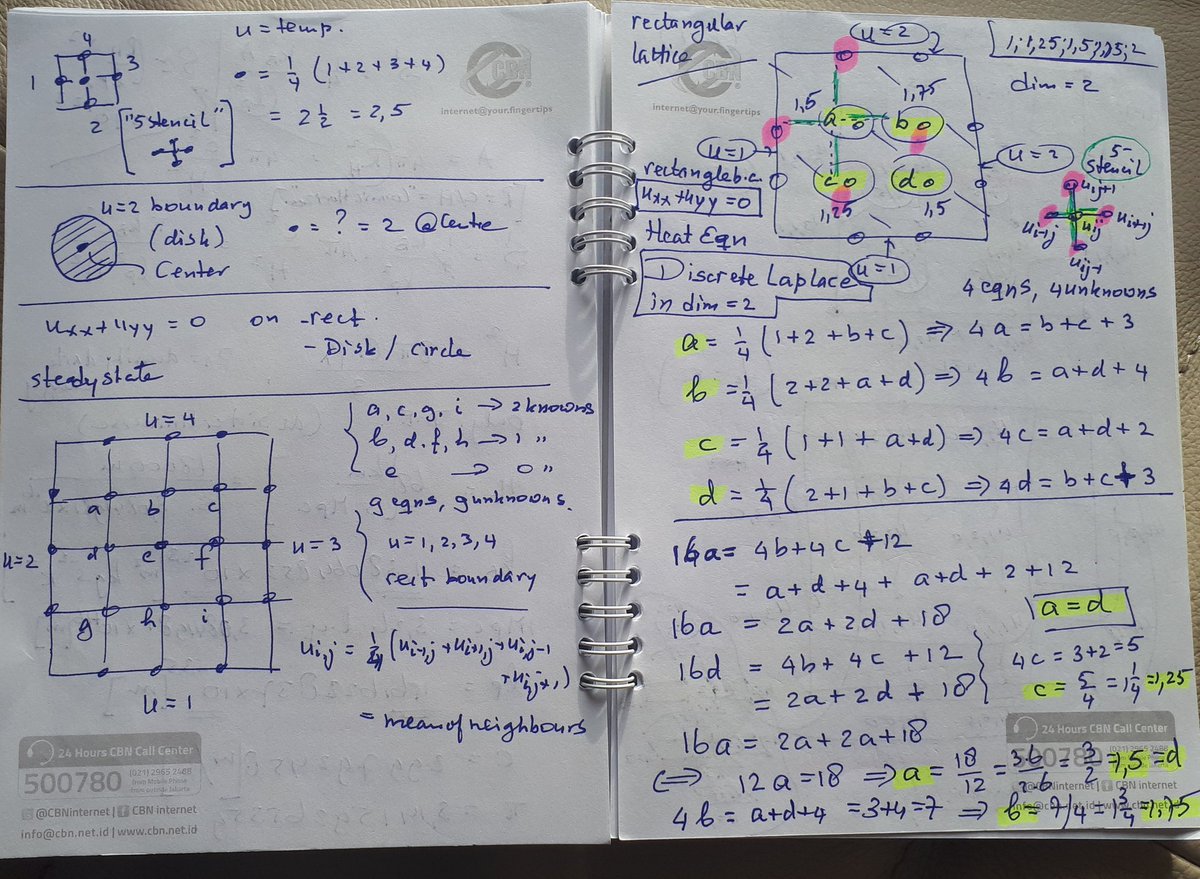 4
1
3
2
u = temp.
• = 1/4 (1+2+3+4)
= 2 1/2 = 2,5
["5 stencil"]
CBN
internet@your.fingertips
u=2 boundary
(disk)
Center
• = ? = 2 @Centre
uxx+uyy = 0 on - rect.
- Disk / circle
steady state
u = 4
a b c
d e f
g h i
u=2
u = 3
u = 1
a, c, g, i → 2 knowns
b, d, f, h → 1 "
e → 0 "
9 eqns, 9 unknowns.
u = 1, 2, 3, 4
rect boundary
ui,j = 1/4 (ui-1,j + ui+1,j + ui,j-1
+ ui,j+1)
= mean of neighbours
24 Hours CBN Call Center
500780
(021) 2965 2488
from Mobile Phone
from outside Jakarta
@CBNinternet | CBN internet
info@cbn.net.id | www.cbn.net.id
rectangular
lattice
CBN
internet@your.fingertips
u=2
1; 1,25; 1,5; 1,75; 2
dim = 2
1,5
1,75
a b
u=1
u=2
c d
1,25
1,5
u=1
5-
stencil
uij+1
ui-1j
uij
ui+1j
uij-1
rectangle b.c.
uxx+uyy=0
Heat Eqn
Discrete Laplace
in dim = 2
4 eqns, 4 unknowns
a = 1/4 (1+2+b+c) ⇒ 4a = b+c+3
b = 1/4 (2+2+a+d) ⇒ 4b = a+d+4
c = 1/4 (1+1+a+d) ⇒ 4c = a+d+2
d = 1/4 (2+1+b+c) ⇒ 4d = b+c+3
16a = 4b+4c+12
= a+d+4+ a+d+2+12
16a = 2a+2d+18
a = d
16d = 4b+4c+12
= 2a+2d+18
4c = 3+2=5
c = 5/4 = 1 1/4 = 1,25
16a = 2a+2a+18
⇔ 12a = 18 ⇒ a = 18/12 = 3·6/2·6 3/2 = 1,5 = d
4b = a+d+4 = 3+4 = 7 ⇒ b = 7/4 = 1 3/4 = 1,75
24 Hours CBN Call Center
CBN internet